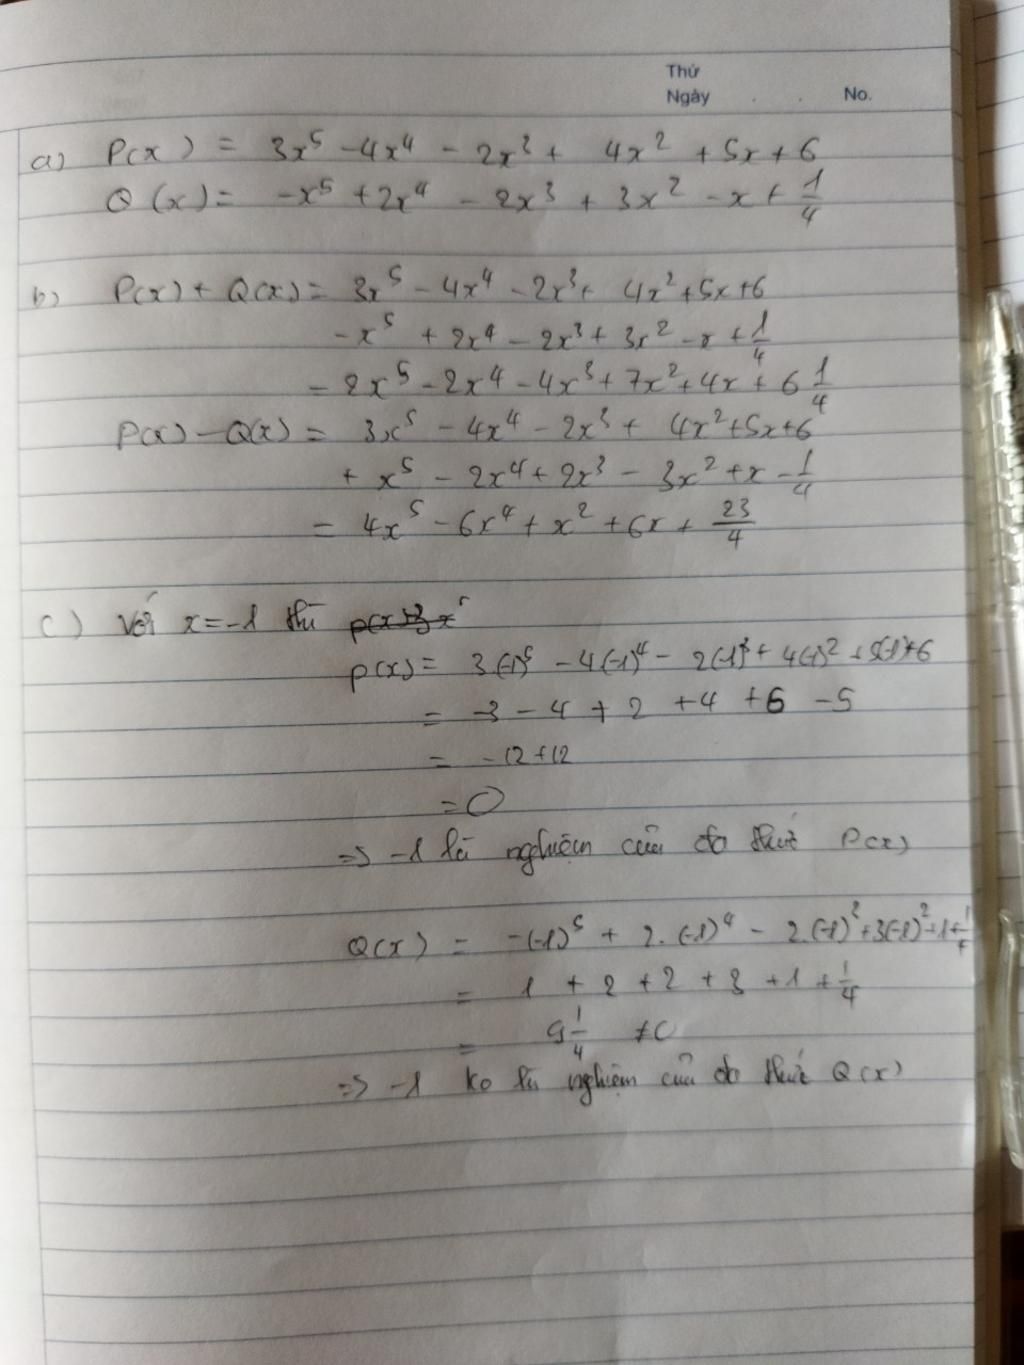 Thứ
Ngày . . No.
a) P(x) = 3x⁵ - 4x⁴ - 2x³ + 4x² + 5x + 6
Q(x) = -x⁵ + 2x⁴ - 2x³ + 3x² - x + 1/4
b) P(x) + Q(x) = 3x⁵ - 4x⁴ - 2x³ + 4x² + 5x + 6
- x⁵ + 2x⁴ - 2x³ + 3x² - x + 1/4
= 2x⁵ - 2x⁴ - 4x³ + 7x² + 4x + 6 1/4
P(x) - Q(x) = 3x⁵ - 4x⁴ - 2x³ + 4x² + 5x + 6
+ x⁵ - 2x⁴ + 2x³ - 3x² + x - 1/4
= 4x⁵ - 6x⁴ + x² + 6x + 23/4
c) Với x = -1 thì
P(x) = 3.(-1)⁵ - 4(-1)⁴ - 2(-1)³ + 4(-1)² + 5(-1) + 6
= -3 - 4 + 2 + 4 + 6 - 5
= -12 + 12
= 0
=> -1 là nghiệm của đa thức P(x)
Q(x) = -(-1)⁵ + 2.(-1)⁴ - 2.(-1)³ + 3(-1)² + 1 + 1/4
= 1 + 2 + 2 + 3 + 1 + 1/4
= 9 1/4 ≠ 0
=> -1 ko là nghiệm của đa thức Q(x)